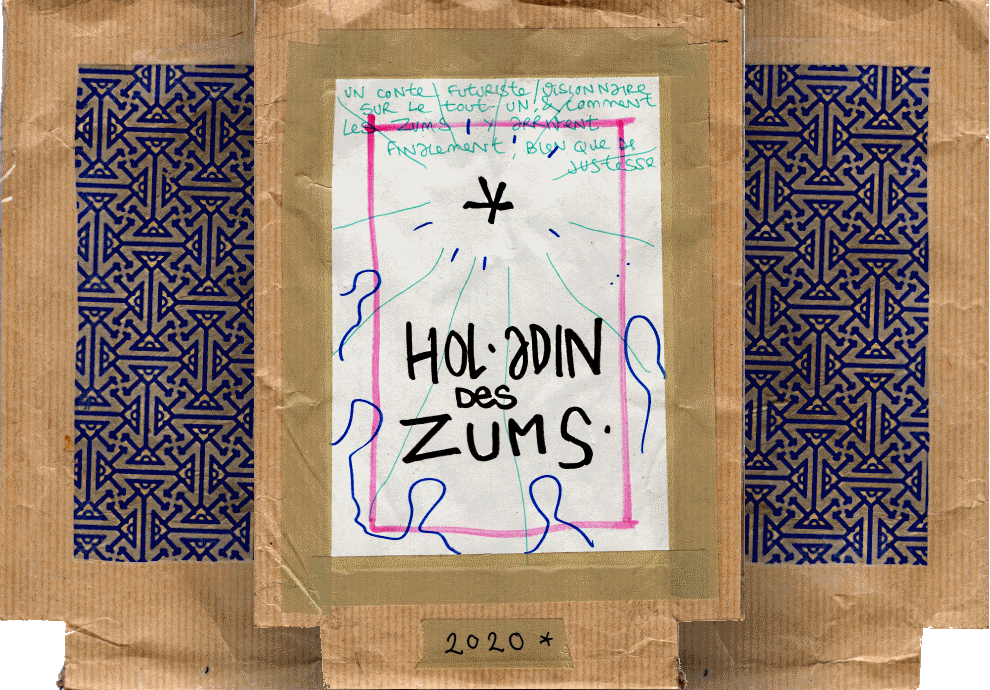 UN CONTE FUTURISTE VISIONNAIRE
SUR LE TOUT-UN, & COMMENT
LES ZUMS Y ARRIVENT
FINALEMENT, BIEN QUE DE
JUSTESSE
HOL·ADIN
DES
ZUMS·
2020 *